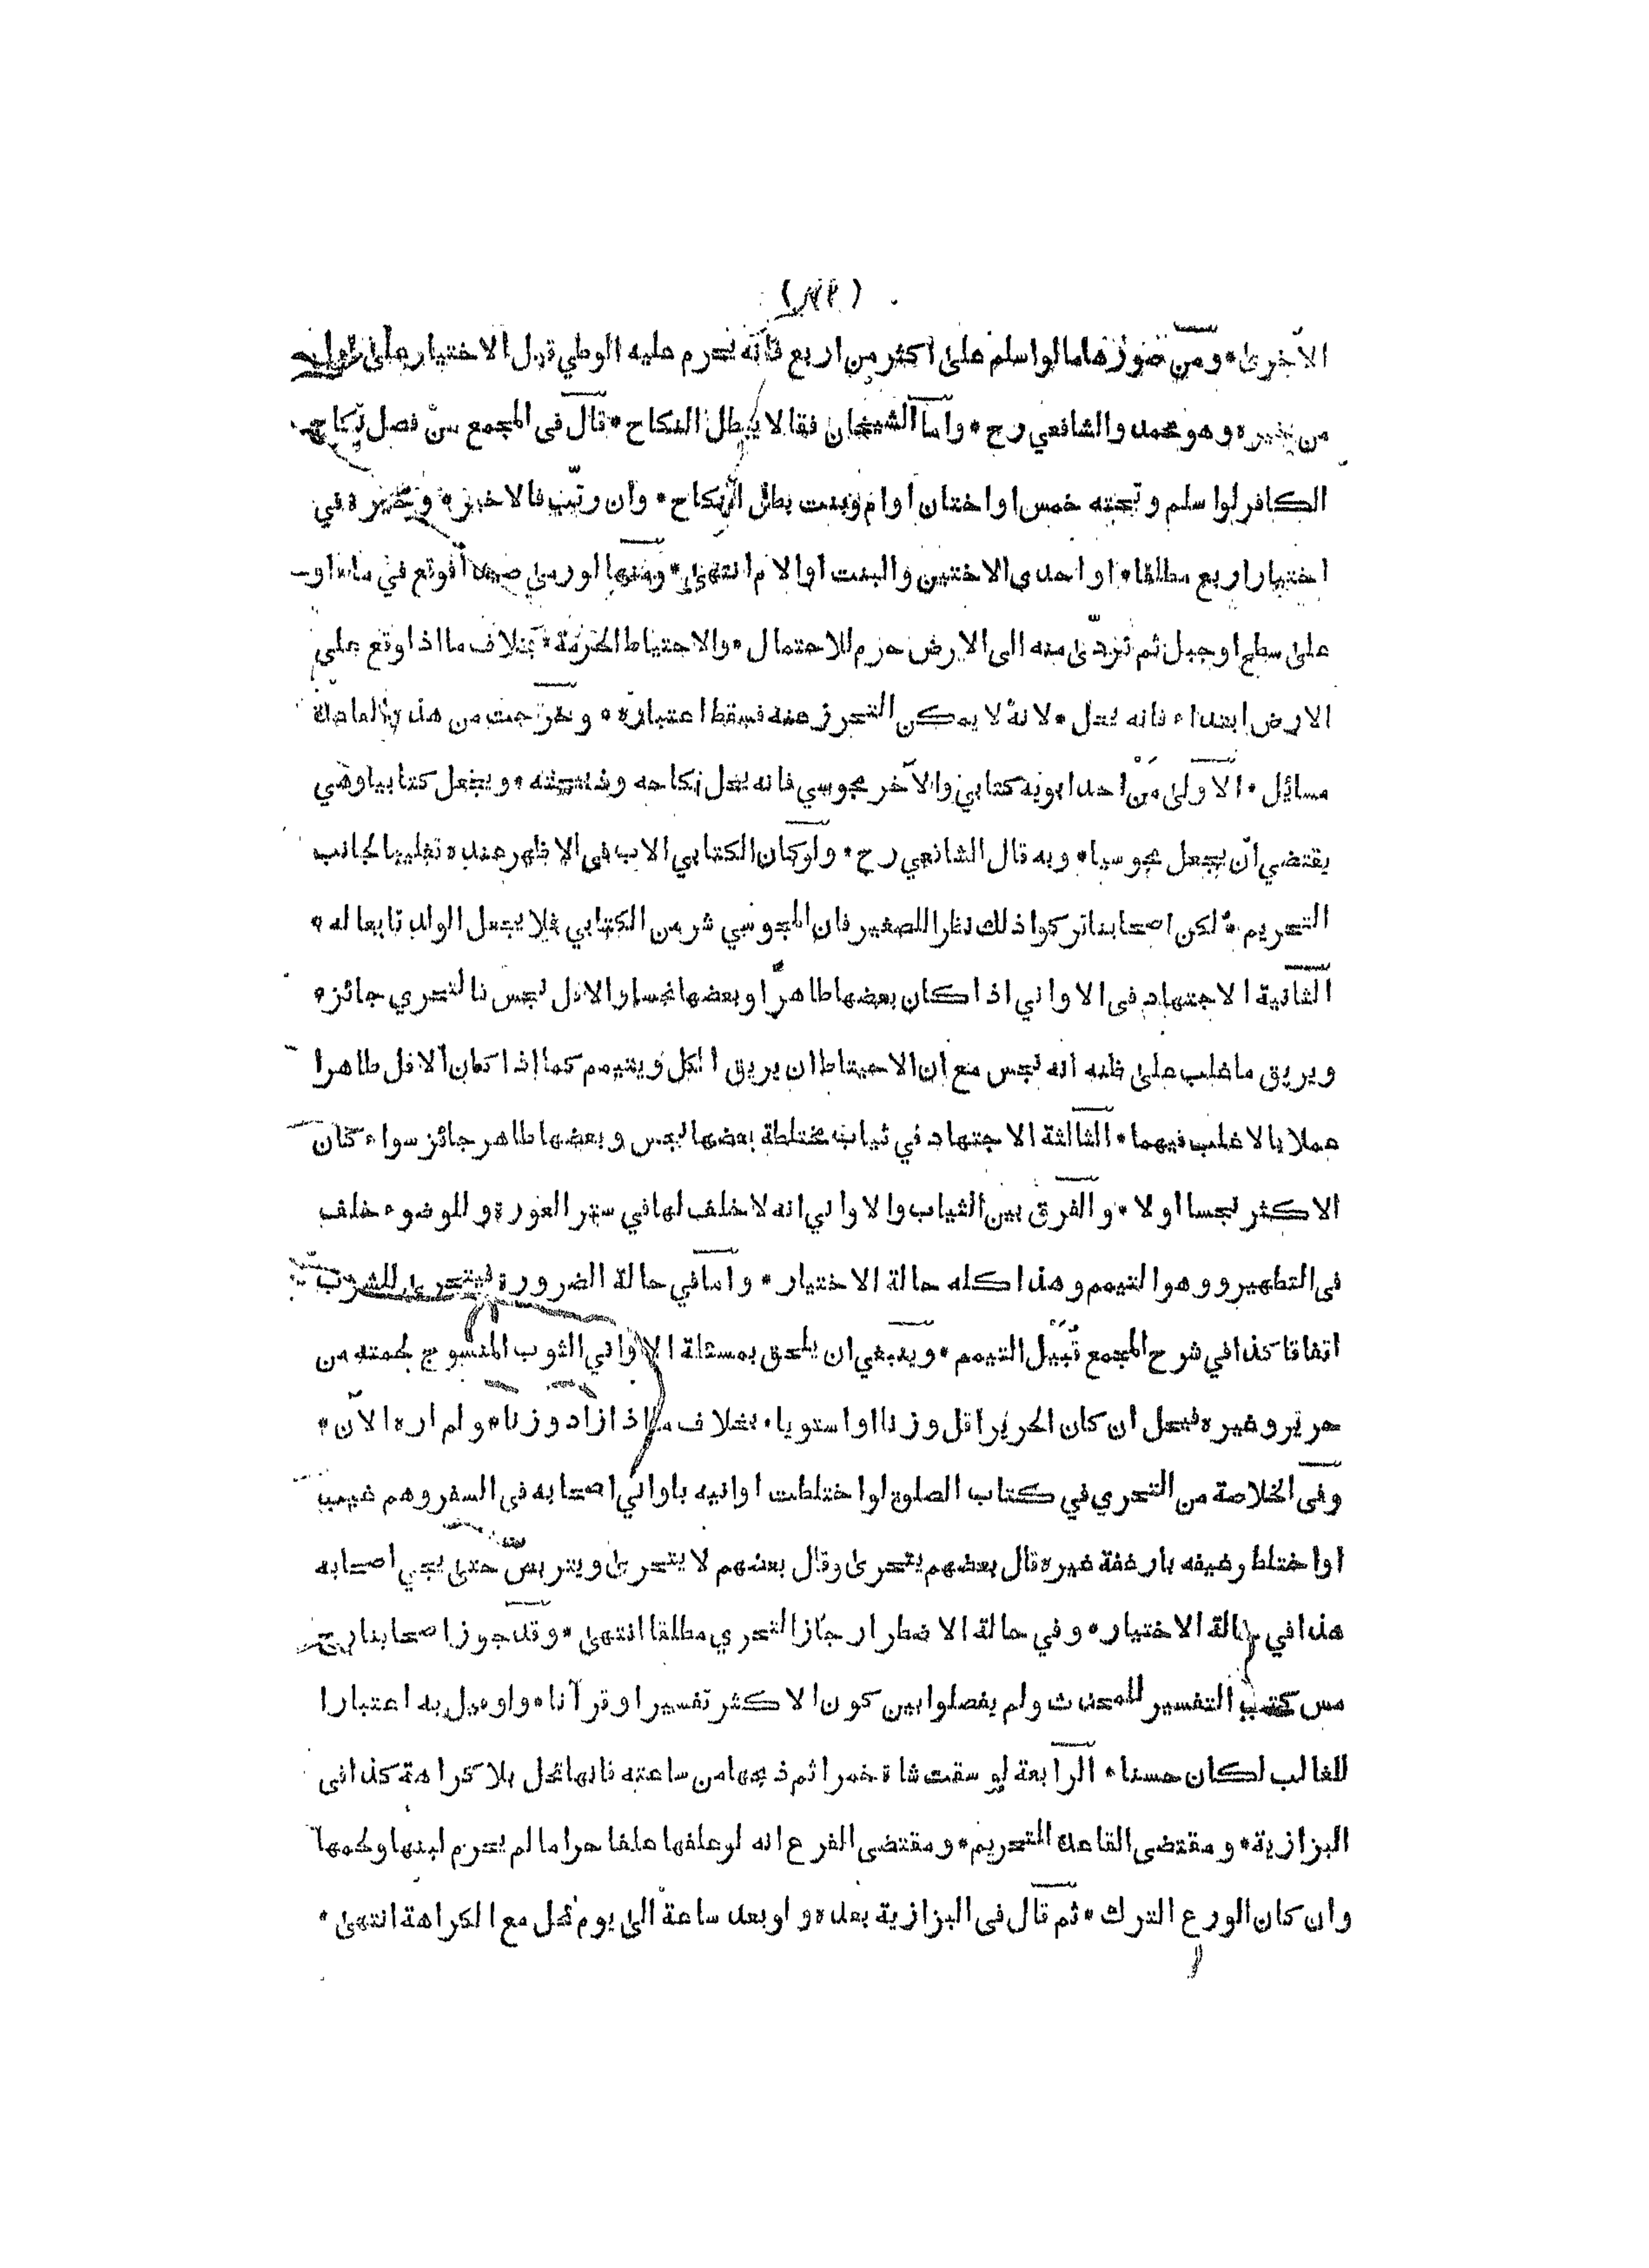 الاخرى * ومن صورها ما لو اسلم على اكثر من اربع فانه يحرم عليه الوطي قبل الاختيار على قول
من خيره وهو محمد والشافعي رح * واما الشيخان فقالا يبطل النكاح * قال فى المجمع من فصل نكاح
الكافر لو اسلم وتحته خمس او اختان او ام وبنت بطل النكاح * وان رتب فالاخير * وخيره في
اختيار اربع مطلقا * او احدى الاختين والبنت او الام انتهى * ومنها لو رمى صيدا فوقع في ماء او
على سطح او جبل ثم تردّى منه الى الارض حرم للاحتمال * والاحتياط الحرمة * بخلاف ما اذا وقع على
الارض ابتداء فانه يحل * لانه لا يمكن التحرز عنه فسقط اعتباره * وخرجت من هذه القاعدة
مسائل * الاولى مَنْ احد ابويه كتابي والآخر مجوسي فانه يحل نكاحه وذبيحته * ويجعل كتابيا وهي
يقتضي ان يجعل مجوسيا * وبه قال الشافعي رح * ولو كان الكتابي الاب فى الاظهر عنده تغليبا لجانب
التحريم * لكن اصحابنا تركوا ذلك نظرا للصغير فان المجوسي شر من الكتابي فلا يجعل الولد تابعا له *
الثانية الاجتهاد فى الاواني اذا كان بعضها طاهرا وبعضها نجسا والاقل نجس فالتحري جائز *
ويريق ما غلب على ظنه انه نجس مع ان الاحتياط ان يريق الكل ويتيمم كما اذا كان الاقل طاهرا
عملا بالاغلب فيهما * الثالثة الاجتهاد في ثياب مختلطة بعضها نجس وبعضها طاهر جائز سواء كان
الاكثر نجسا او لا * والفرق بين الثياب والاواني انه لا خلف لها في ستر العورة وللوضوء خلف
فى التطهير وهو التيمم وهذا كله حالة الاختيار * واما في حالة الضرورة فيتحرى للشرب
اتفاقا كذا في شرح المجمع قُبَيْل التيمم * وينبغي ان يلحق بمسئلة الاواني الثوب المنسوج لحمته من
حرير وغيره فيحل ان كان الحرير اقل وزنا او استويا * بخلاف ما اذا زاد وزنا * ولم اره الآن *
وفى الخلاصة من التحري في كتاب الصلوة لو اختلطت اوانيه باواني اصحابه فى السفر وهم غيب
او اختلط رغيفه بارغفة غيره قال بعضهم يتحرى وقال بعضهم لا يتحرى ويتربص حتى يجي اصحابه
هذا في حالة الاختيار * وفي حالة الاضطرار جاز التحري مطلقا انتهى * وقد جوز اصحابنا رح
مس كتب التفسير للمحدث ولم يفصلوا بين كون الاكثر تفسيرا او قرآنا * ولو قيل به اعتبارا
للغالب لكان حسنا * الرابعة لو سقت شاة خمرا ثم ذبحها من ساعته فانها تحل بلا كراهة كذا فى
البزازية * ومقتضى القاعدة التحريم * ومقتضى الفرع انه لو علفها علفا حراما لم يحرم لبنها ولحمها
وان كان الورع الترك * ثم قال فى البزازية بعده ولو بعد ساعة الى يوم تحل مع الكراهة انتهى *